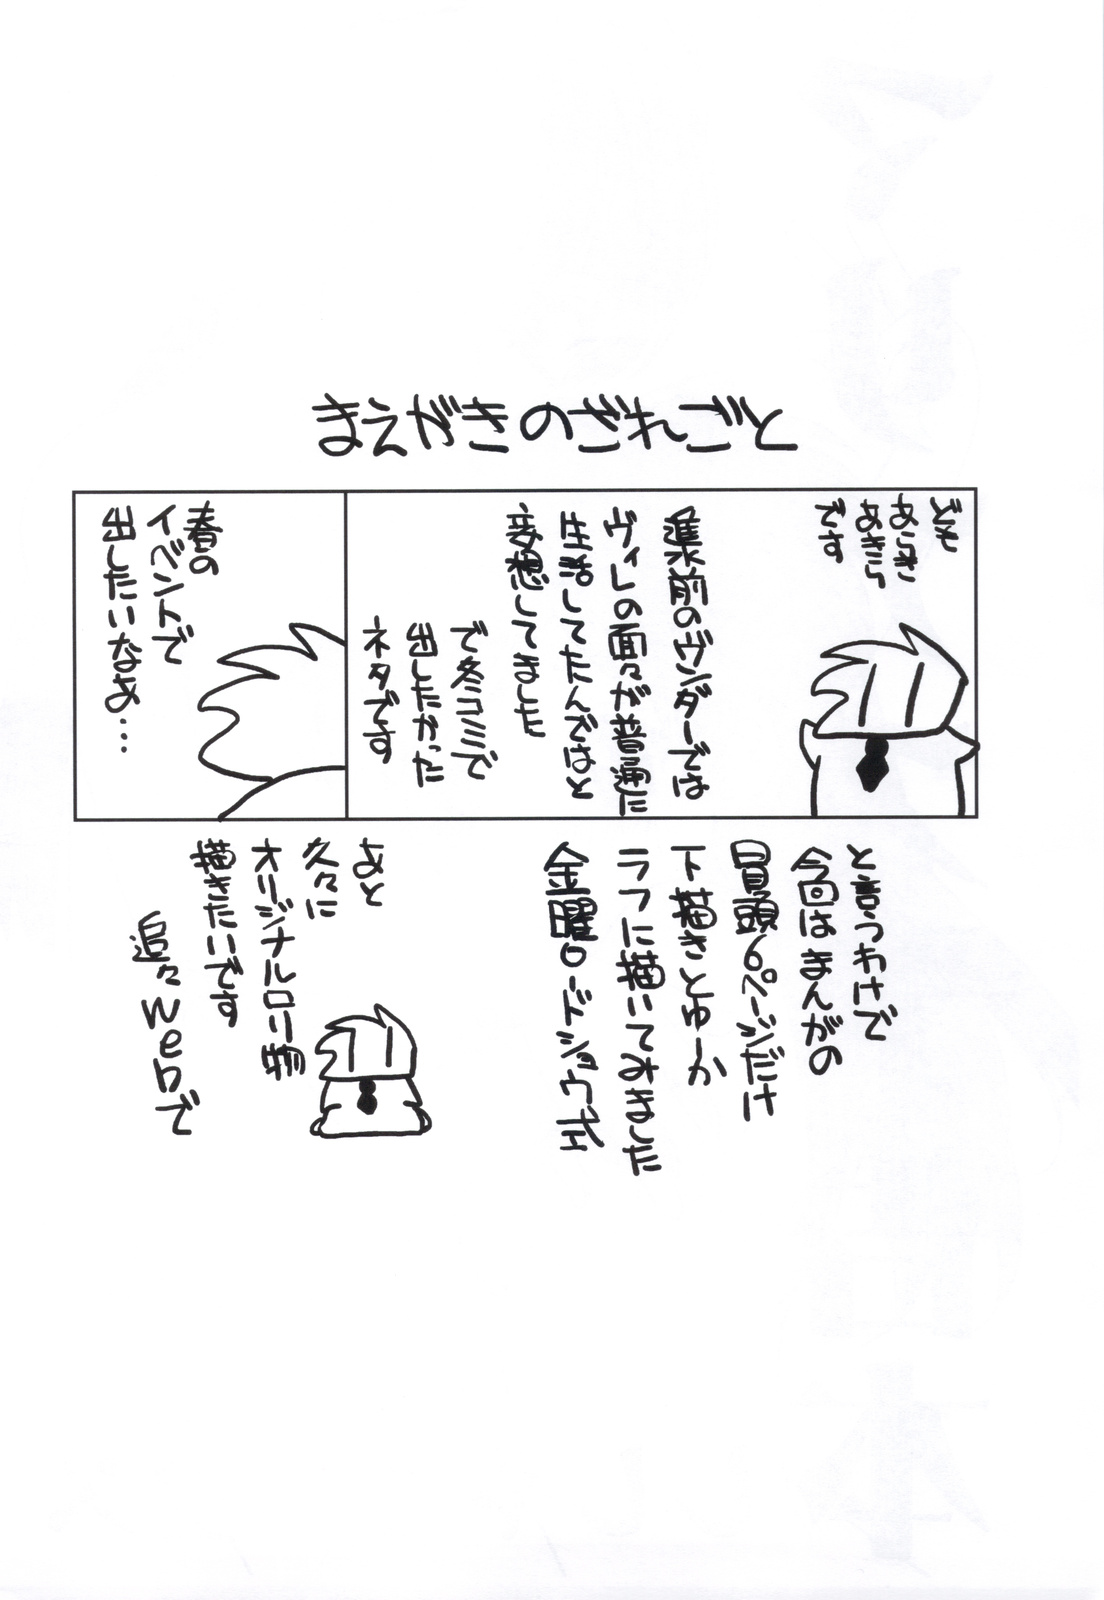 まえがきのざれごと
ども
あらき
あきら
です
進撃前のヴンダーでは
ヴィレの面々が普通に
生活してたんではと
妄想してました
で冬コミで
出したかった
ネタです
春の
イベントで
出したいなあ…
と言うわけで
今回はまんがの
冒頭6ページだけ
下描きとゆーか
ラフに描いてみました
金曜ロードショウ式
あと
久々に
オリジナルロリ物
描きたいです
追々webで